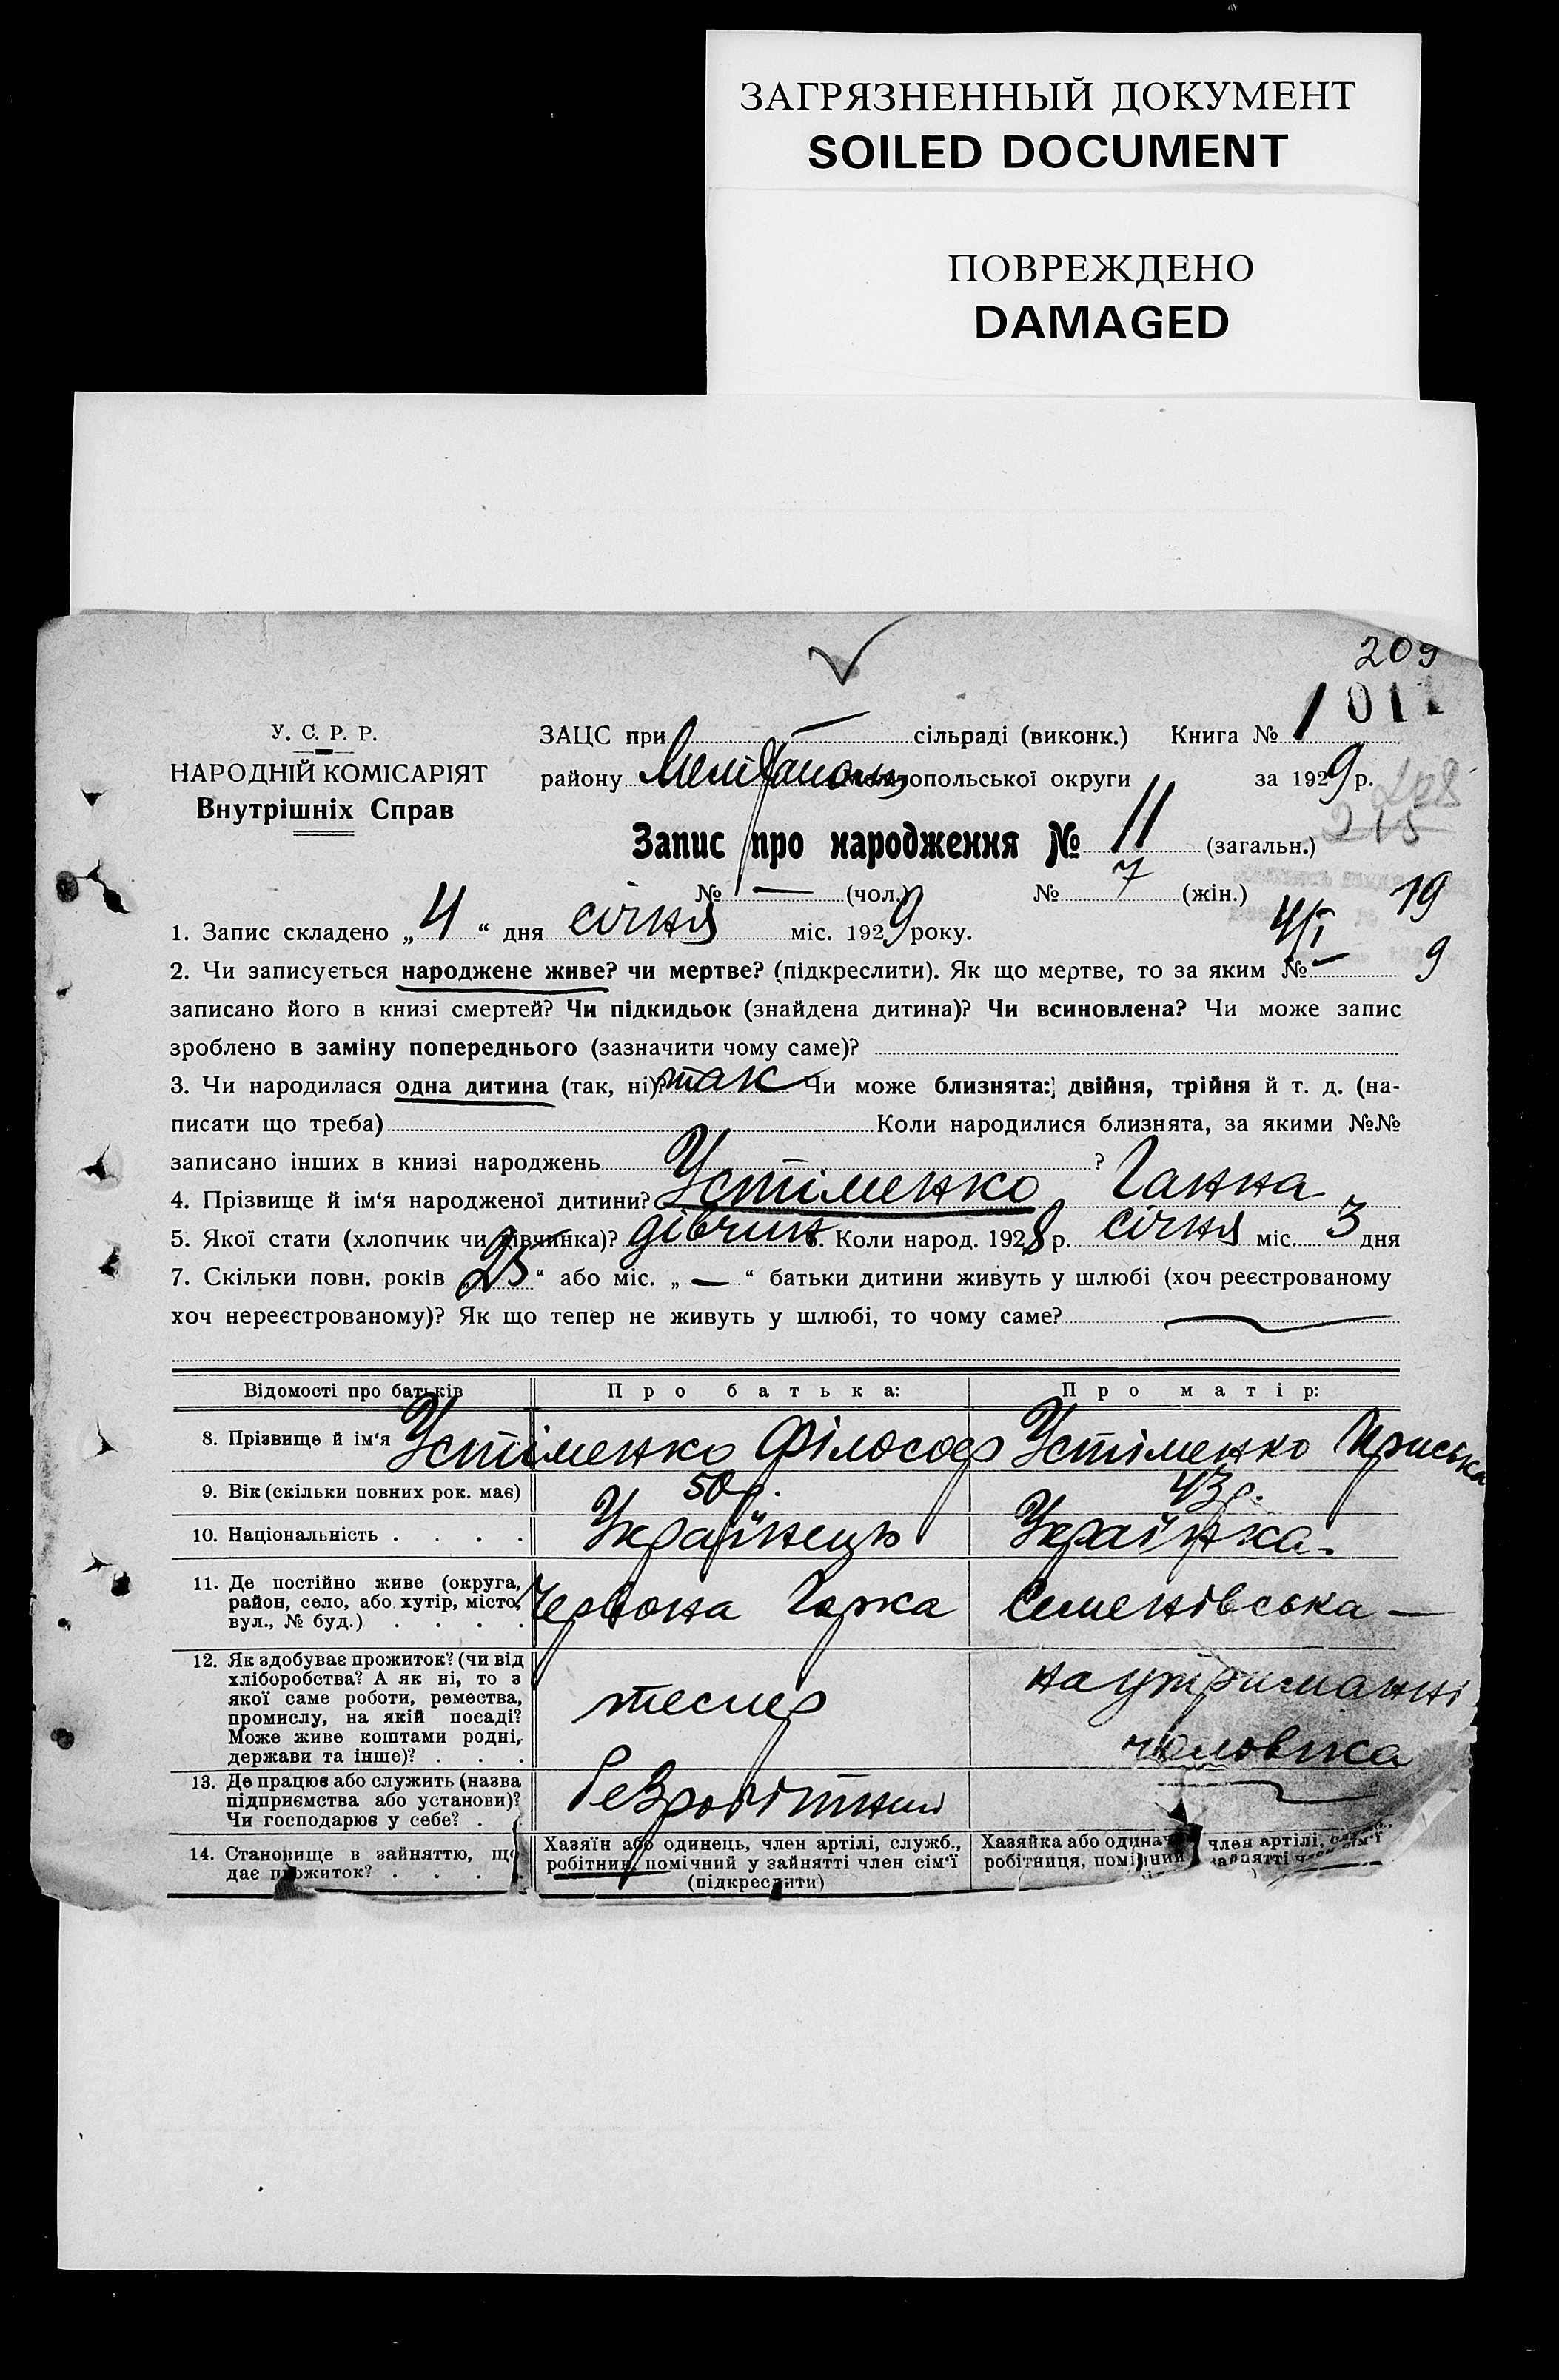 ЗАГРЯЗНЕННЫЙ ДОКУМЕНТ
SOILED DOCUMENT
ПОВРЕЖДЕНО
DAMAGED
209
У. С. Р. Р.
НАРОДНІЙ КОМІСАРІЯТ
Внутрішніх Справ
ЗАЦС при — сільраді (виконк.) Книга № 1 011
району Мелітополь Мелітопольської округи за 1929 р.
208
215
Запис про народження № 11 (загальн.)
№ — (чол.) № 7 (жін.)
19
1. Запис складено „4“ дня січня міс. 1929 року.
4/I
9
2. Чи записується народжене живе? чи мертве? (підкреслити). Як що мертве, то за яким № —
записано його в книзі смертей? Чи підкидьок (знайдена дитина)? Чи всиновлена? Чи може запис
зроблено в заміну попереднього (зазначити чому саме)?
3. Чи народилася одна дитина (так, ні)? так Чи може близнята: двійня, трійня й т. д. (на-
писати що треба) Коли народилися близнята, за якими №№
записано інших в книзі народжень ?
4. Прізвище й ім‘я народженої дитини? Устіменко Ганна
5. Якої стати (хлопчик чи дівчинка)? дівчин 6. Коли народ. 1928 р. січня міс. 3 дня
7. Скільки повн. років „25“ або міс. „—“ батьки дитини живуть у шлюбі (хоч реєстрованому
хоч нереєстрованому)? Як що тепер не живуть у шлюбі, то чому саме? —
Відомості про батьків Про батька: Про матір:
8. Прізвище й ім‘я Устіменко Філософ Устіменко Приська
9. Вік (скільки повних рок. має) 50р. 43р.
10. Національність . . . . Українець Українка.
11. Де постійно живе (округа,
район, село, або хутір, місто,
вул., № буд.) . . . .
Червона Горка Семенівська —
12. Як здобуває прожиток? (чи від
хліборобства? А як ні, то з
якої саме роботи, ремества,
промислу, на якій посаді?
Може живе коштами родні,
держави та інше)? . . .
тесляр
на утриманні
чоловіка
13. Де працює або служить (назва
підприємства або установи)?
Чи господарює у себе? . .
безробітний —
14. Становище в зайняттю, що
дає прожиток? . . . .
Хазяїн або одинець, член артілі, служб.,
робітник, помічний у зайнятті член сім‘ї
(підкреслити)
Хазяйка або одинач член артілі,
робітниця, помічний зайнятті член сім‘ї